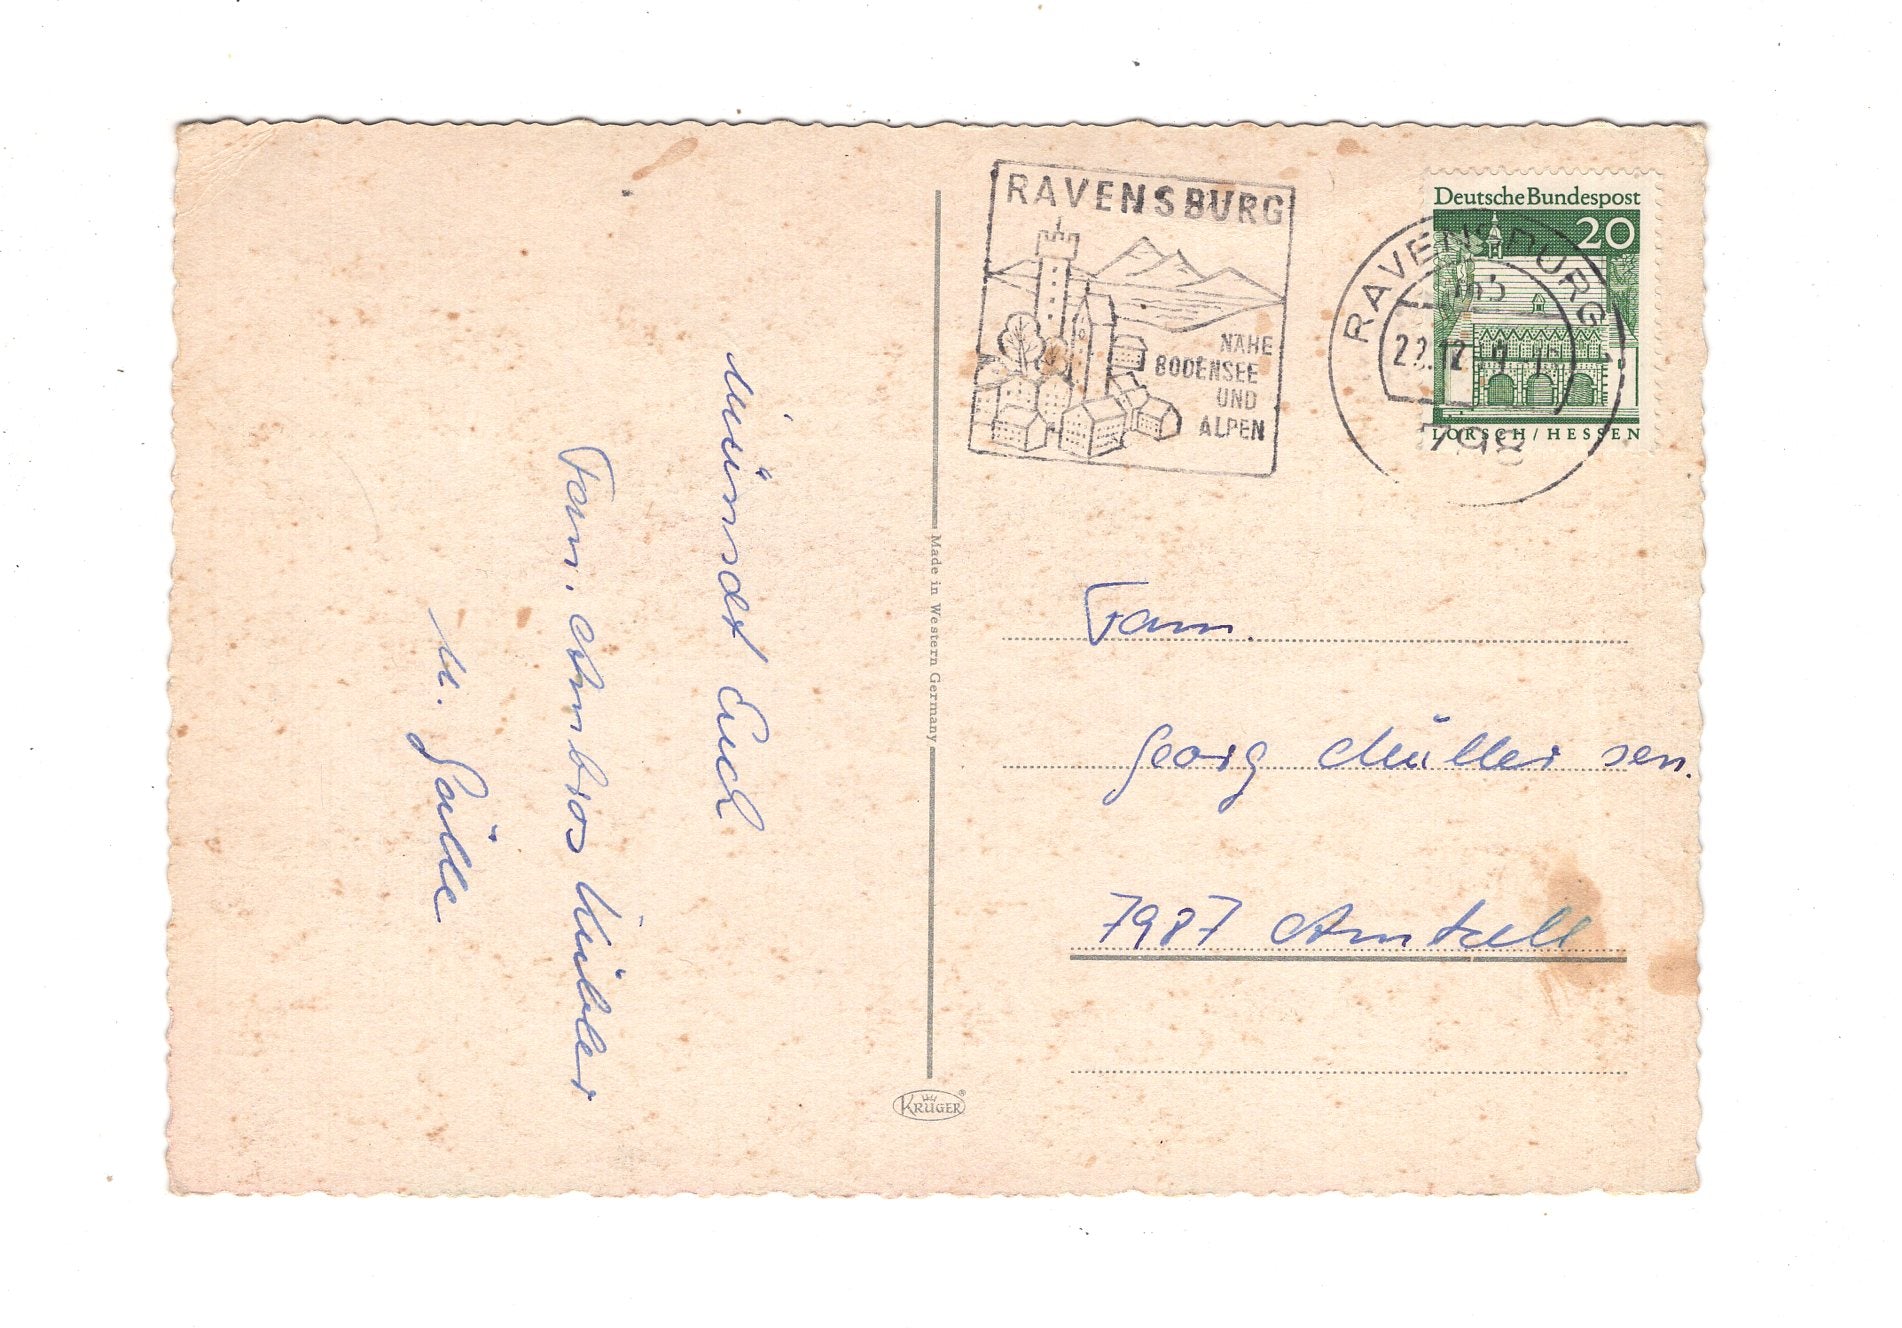 Wünscht Euch
Fam. Ambros Kübler
u. Hölle
Made in Western Germany
KRÜGER
RAVENSBURG
NÄHE
BODENSEE
UND
ALPEN
Deutsche Bundespost
20
LORSCH/HESSEN
RAVENSBURG
22.12
798
Fam.
Georg Müller sen.
7987 Amtzell